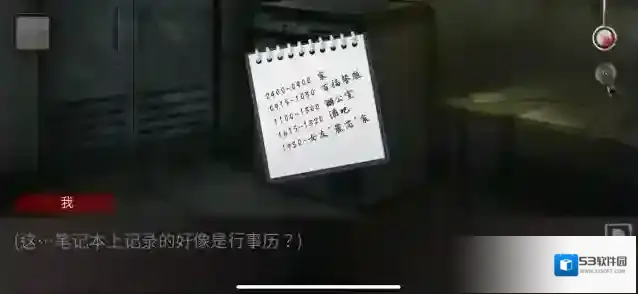 2400~0900 家
0915~1030 百福餐廳
1100~1500 辦公室
1615~1820 酒吧
1930~女友"麗蓉"家
我
(这…笔记本上记录的好像是行事历？)
53软件园